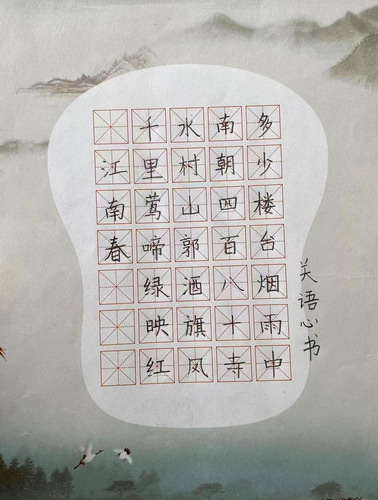 江南春
千里莺啼绿映红
水村山郭酒旗风
南朝四百八十寺
多少楼台烟雨中
关语心书